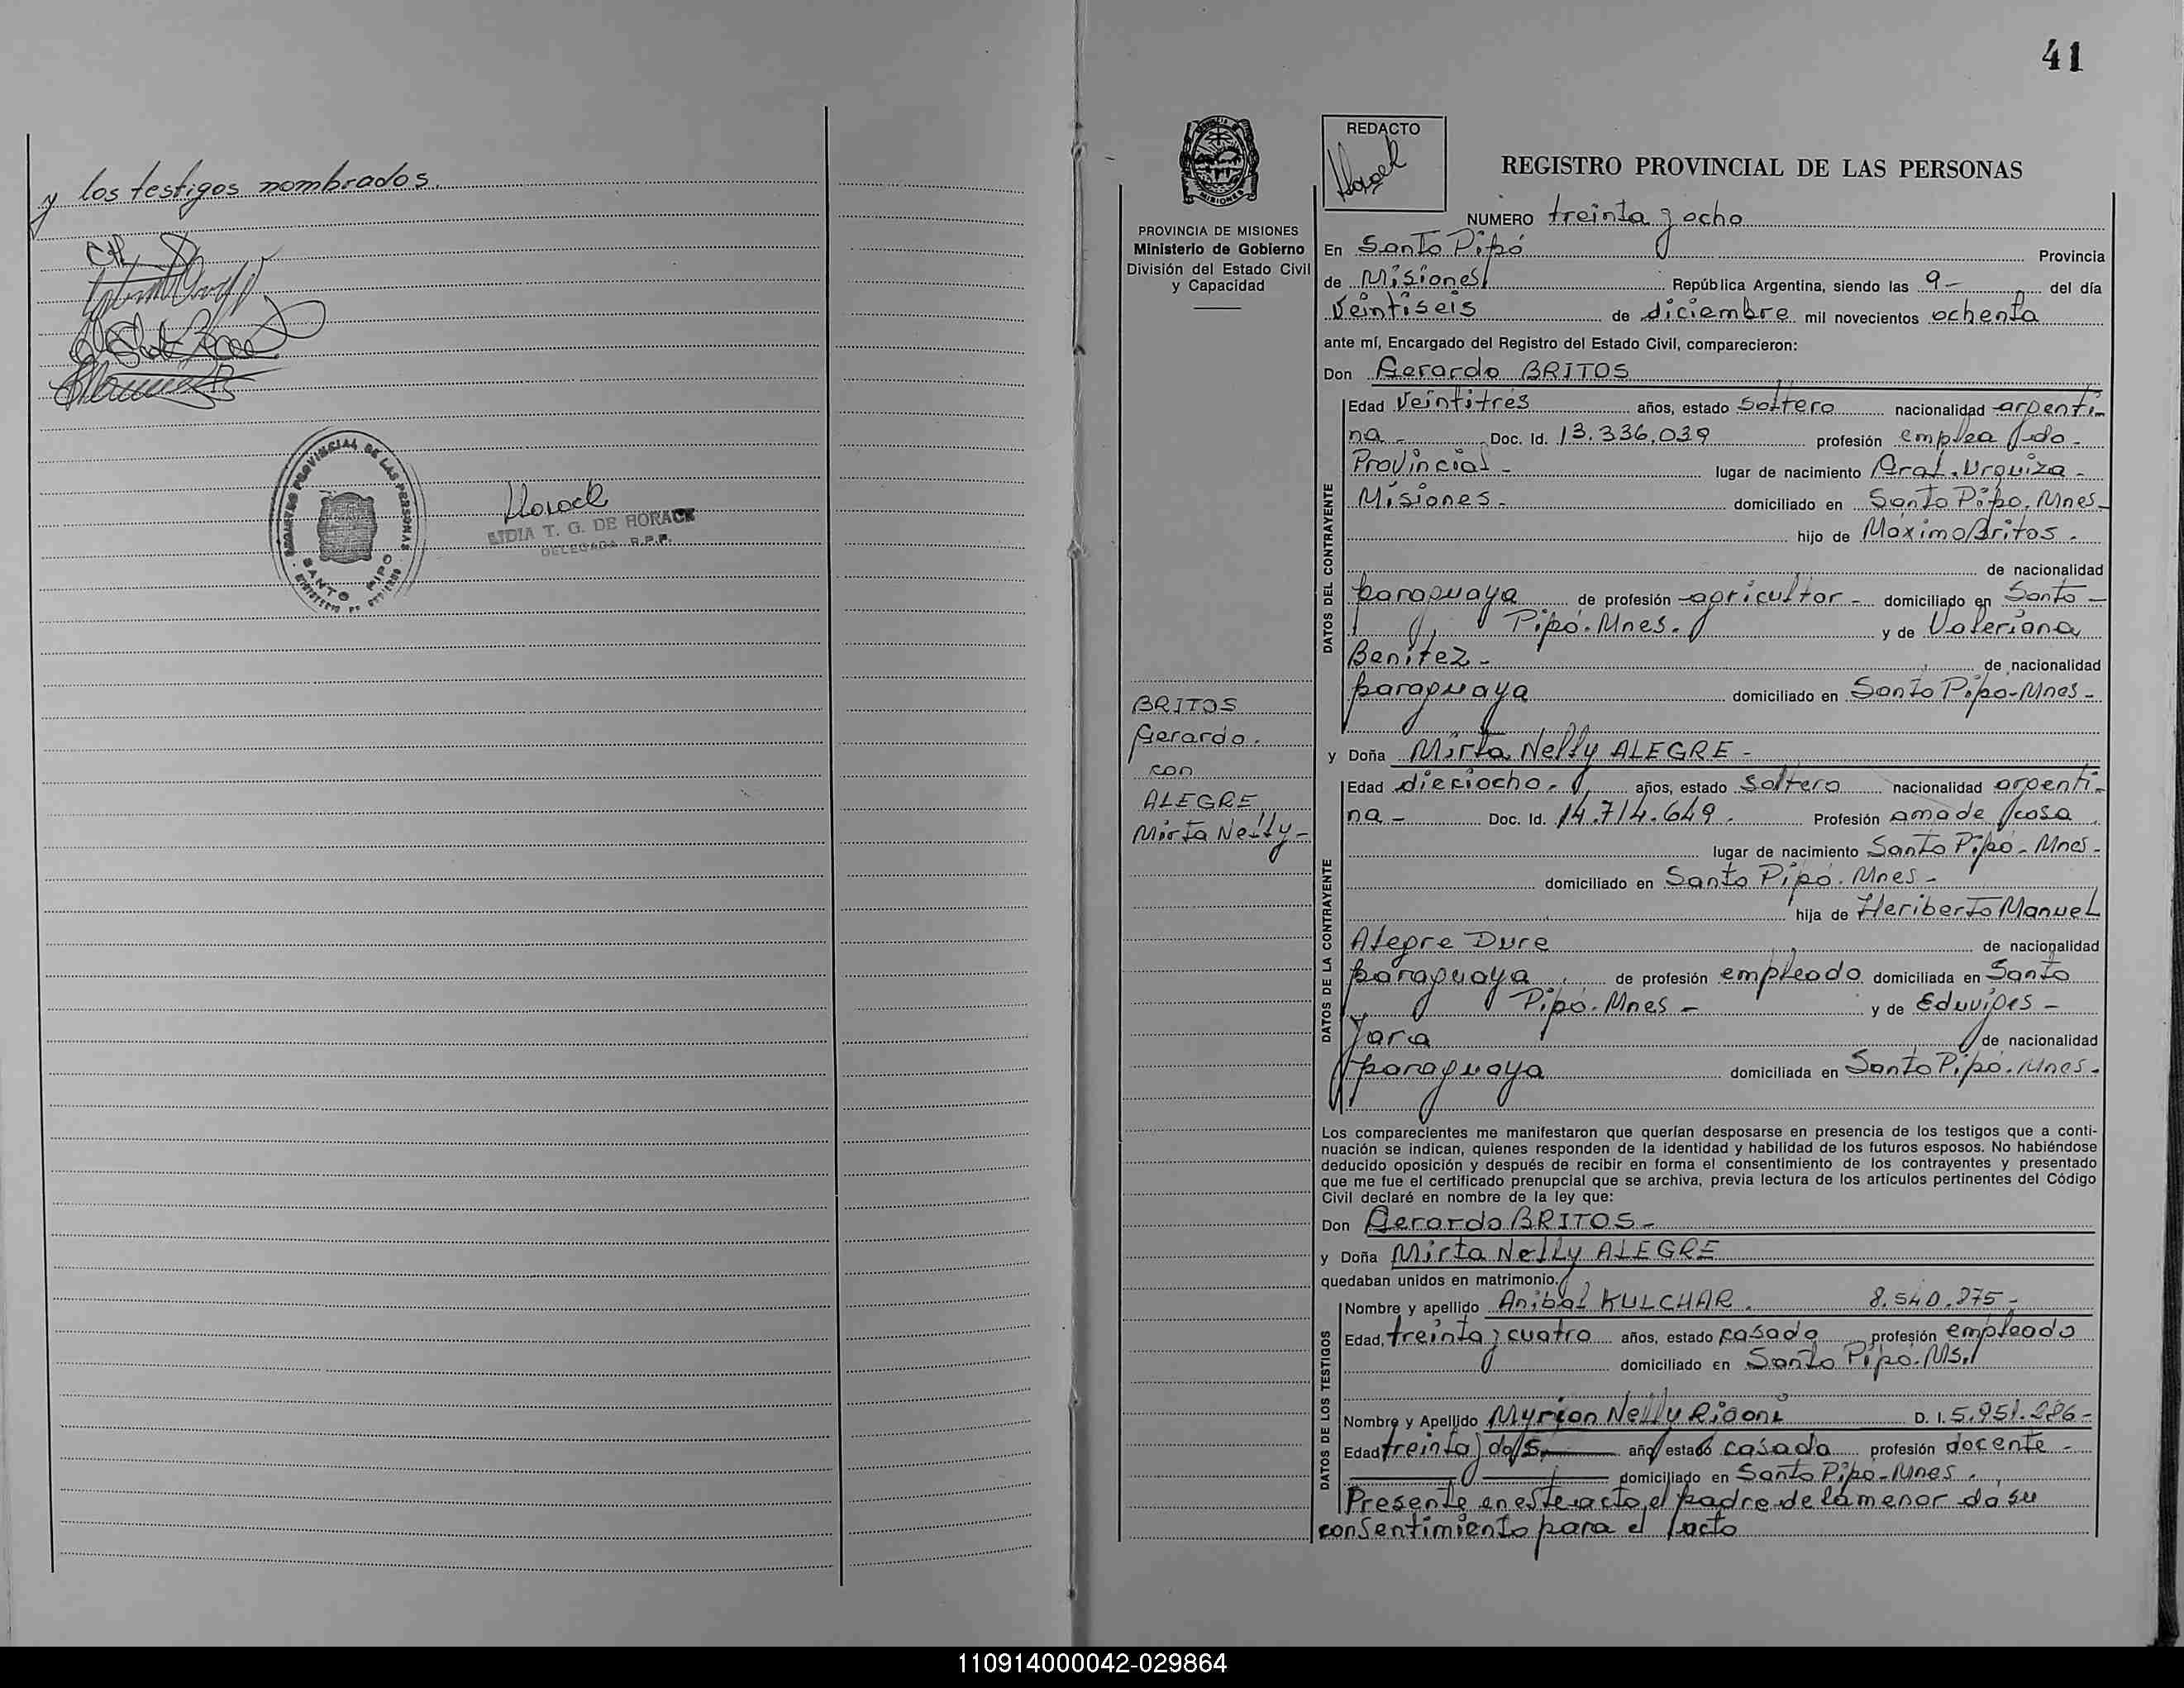 y los testigos nombrados.
REGISTRO PROVINCIAL DE LAS PERSONAS
SANTO PIPO
LIDIA T. G. DE HORACK
DELEGADA R.P.P.
41
PROVINCIA DE MISIONES
Ministerio de Gobierno
División del Estado Civil
y Capacidad
BRITOS
Gerardo.
con
ALEGRE
Mirta Nelly-
REDACTO
REGISTRO PROVINCIAL DE LAS PERSONAS
NUMERO treinta y ocho
En Santo Pipó Provincia
de Misiones República Argentina, siendo las 9- del día
Veintiseis de diciembre mil novecientos ochenta
ante mí, Encargado del Registro del Estado Civil, comparecieron:
Don Gerardo BRITOS
Edad Veintitres años, estado soltero nacionalidad argenti-
na- Doc. Id. 13.336.039 profesión empleado-
Provincial- lugar de nacimiento Gral. Urquiza-
Misiones- domiciliado en Santo Pipo. Mnes-
hijo de Maximo Britos.
de nacionalidad
paraguaya de profesión agricultor- domiciliado en Santo-
Pipó. Mnes. y de Valeriana
Benitez- de nacionalidad
paraguaya domiciliado en Santo Pipó-Mnes-
y Doña Mirta Nelly ALEGRE-
Edad dieciocho- años, estado soltera nacionalidad argenti-
na- Doc. Id. 14.714.649. Profesión ama de casa.
lugar de nacimiento Santo Pipó-Mnes-
domiciliado en Santo Pipó. Mnes-
hija de Heriberto Manuel
Alegre Dure de nacionalidad
paraguaya de profesión empleado domiciliada en Santo
Pipó. Mnes- y de Eduviges-
Jara de nacionalidad
paraguaya domiciliada en Santo Pipó. Mnes.
Los comparecientes me manifestaron que querían desposarse en presencia de los testigos que a conti-
nuación se indican, quienes responden de la identidad y habilidad de los futuros esposos. No habiéndose
deducido oposición y después de recibir en forma el consentimiento de los contrayentes y presentado
que me fue el certificado prenupcial que se archiva, previa lectura de los artículos pertinentes del Código
Civil declaré en nombre de la ley que:
Don Gerardo BRITOS-
y Doña Mirta Nelly ALEGRE
quedaban unidos en matrimonio.
Nombre y apellido Anibal KULCHAR. 8.540.875-
Edad, treinta y cuatro años, estado casado profesión empleado
domiciliado en Santo Pipó. Ms.
Nombre y Apellido Myrian Nelly Rigoni D. I. 5.951.286-
Edad treinta y dos, años, estado casada profesión docente-
domiciliado en Santo Pipó-Mnes.
Presente en este acto, el padre de la menor dá su
consentimiento para el acto
DATOS DEL CONTRAYENTE
DATOS DE LA CONTRAYENTE
DATOS DE LOS TESTIGOS
110914000042-029864